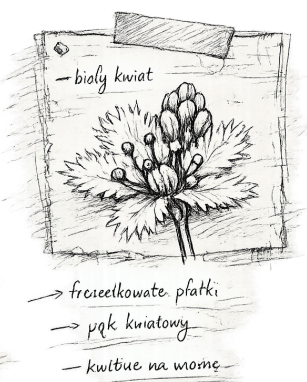 – bioly kwiat
→ frezeelkowate płatki
→ pąk kwiatowy
– kwltiue na wiomę